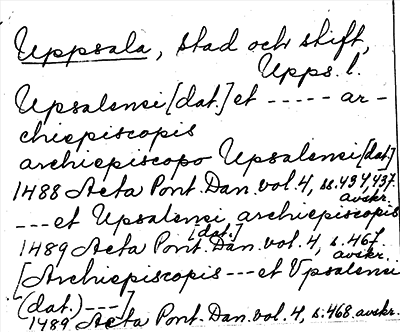 Uppsala, stad och stift,
Upps. l.
Upsalensi [dat.] et ----- ar-
chiepiscopis
archiepiscopo Upsalensi [dat.]
1488 Acta Pont. Dan. vol. 4, ss. 434, 437.
avskr.
--- et Upsalensi archiepiscopis
[dat.]
1489 Acta Pont. Dan. vol. 4, s. 467.
avskr.
[Archiepiscopis --- et Vpsalensi
(dat.) ---]
1489 Acta Pont. Dan. vol. 4, s. 468. avskr.